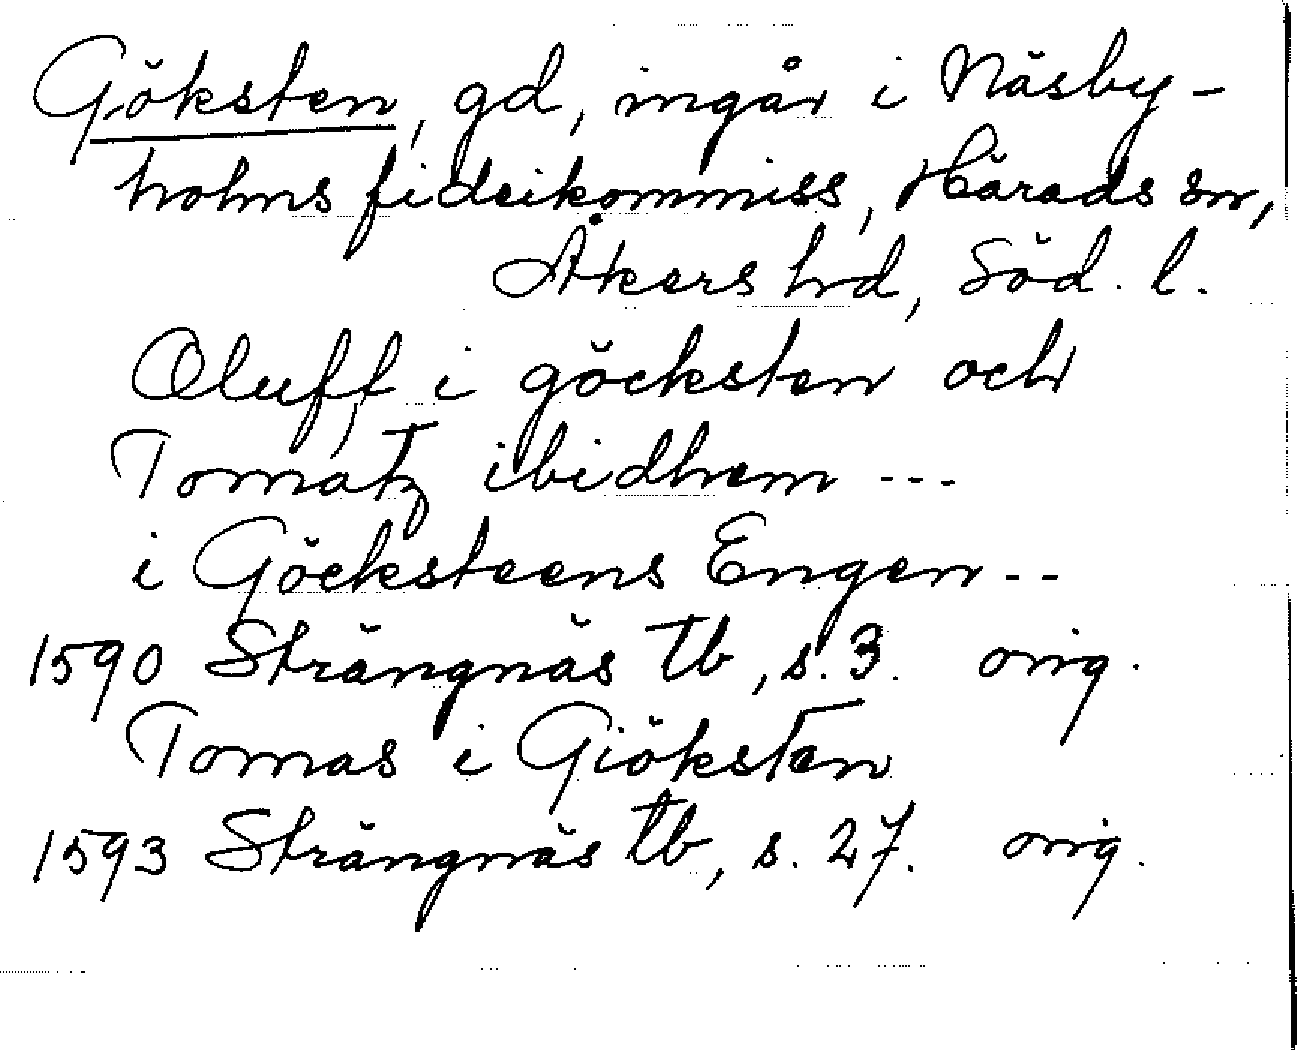 Göksten, gd, ingår i Näsby-
holms fideikommiss, Härads sn,
Åkers hd, Söd. l.
Oluff i göcksten och
Tomatz ibidhem ---
i Göcksteens Engen --
1590 Strängnäs tb, s. 3. orig.
Tomas i Giöksten
1593 Strängnäs tb, s. 27. orig.